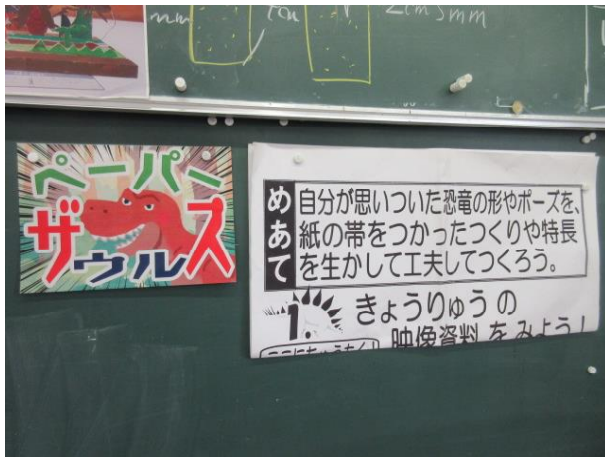 2cm5mm
ペーパー
ザウルス
めあて
自分が思いついた恐竜の形やポーズを、
紙の帯をつかったつくりや特長
を生かして工夫してつくろう。
1.
きょうりゅうの
映像資料をみよう!